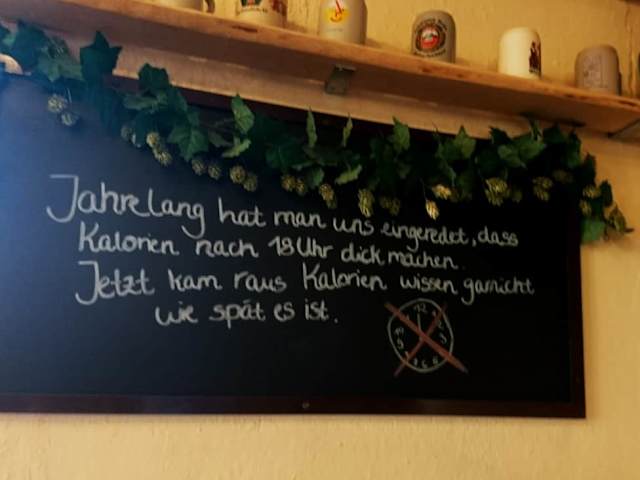 Jahrelang hat man uns eingeredet, dass
Kalorien nach 18 Uhr dick machen.
Jetzt kam raus Kalorien wissen garnicht
wie spät es ist.